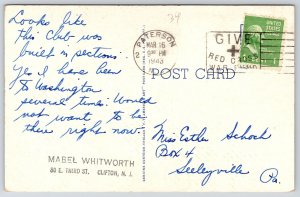 Looks like
this Club was
built in sections.
Yes I have been
to Washington
several times. Would
not want to be
there right now.
MABEL WHITWORTH
80 E. THIRD ST. CLIFTON, N. J.
34
PATERSON
MAR 16
PM
1943
GIVE
RED CROSS
WAR
POST CARD
Miss Esther Schoch
Box 4
Seeleyville
Pa.